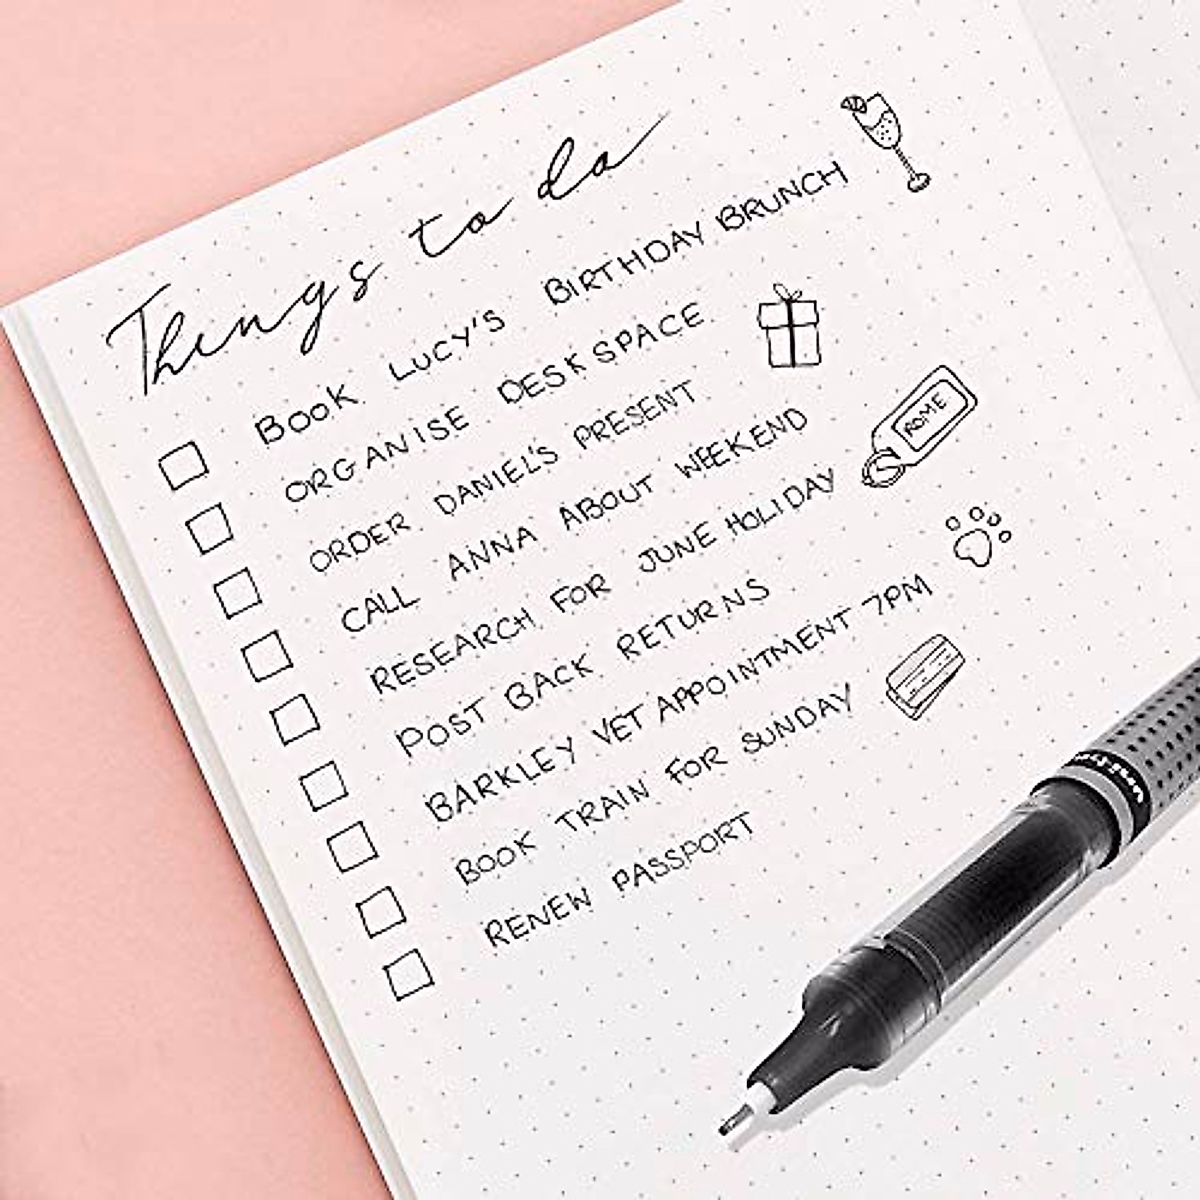 Things to do
BOOK LUCY'S BIRTHDAY BRUNCH
ORGANISE DESK SPACE
ORDER DANIEL'S PRESENT
CALL ANNA ABOUT WEEKEND
RESEARCH FOR JUNE HOLIDAY
ROME
POST BACK RETURNS
BARKLEY VET APPOINTMENT 7PM
BOOK TRAIN FOR SUNDAY
RENEW PASSPORT